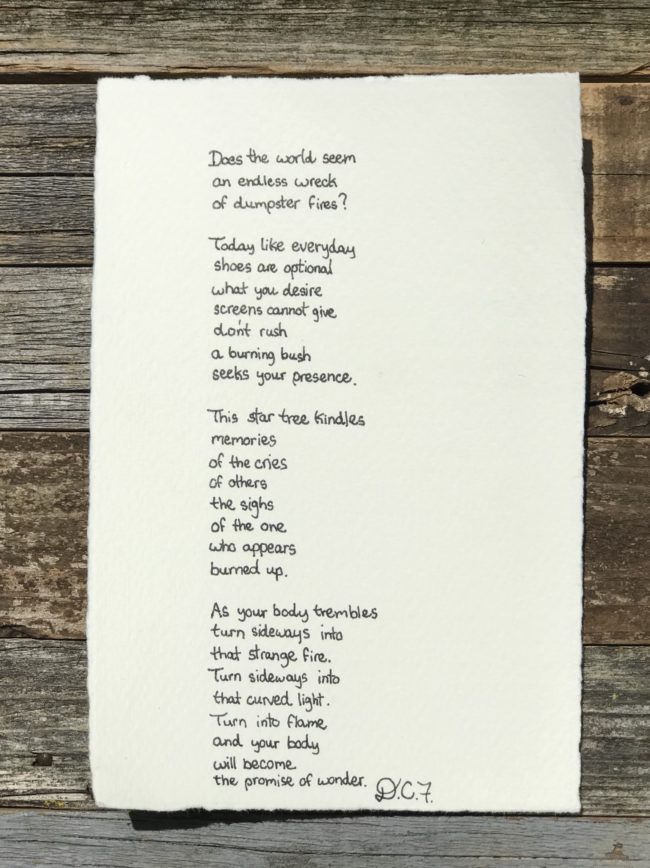 Does the world seem
an endless wreck
of dumpster fires?
Today like everyday
shoes are optional
what you desire
screens cannot give
don't rush
a burning bush
seeks your presence.
This star tree kindles
memories
of the cries
of others
the sighs
of the one
who appears
burned up.
As your body trembles
turn sideways into
that strange fire.
Turn sideways into
that curved light.
Turn into flame
and your body
will become
the promise of wonder.
D.C.F.